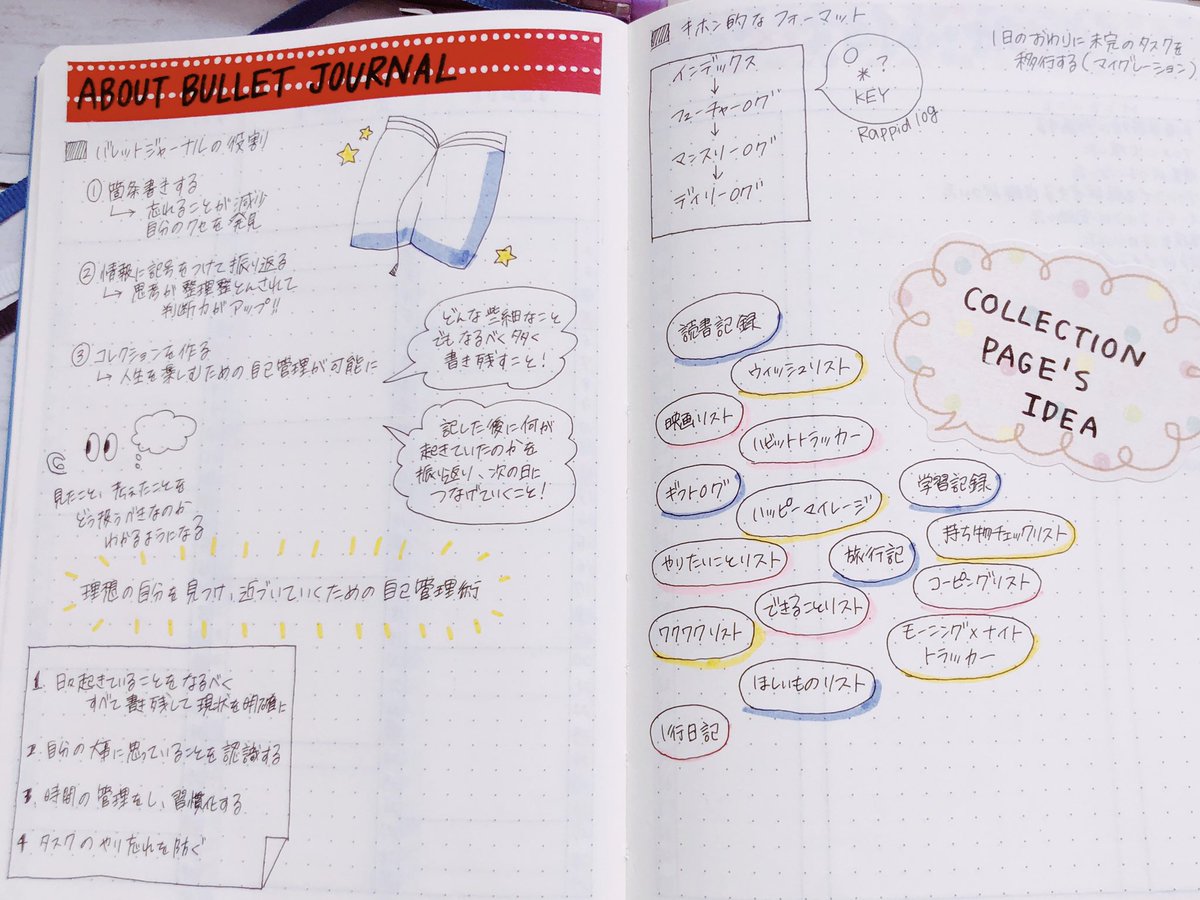 ABOUT BULLET JOURNAL
バレットジャーナルの役割
① 箇条書きする
↳ 忘れることが減少
自分のクセを発見
② 情報に記号をつけて振り返る
↳ 思考が整理整とんされて
判断力がアップ!!
③ コレクションを作る
↳ 人生を楽しむための自己管理が可能に
どんな些細なこと
でもなるべく多く
書き残すこと!
記した後に何が
起きていたのかを
振り返り、次の日に
つなげていくこと!
見たこと、伝えたことを
どう扱うべきなのか
わかるようになる
理想の自分を見つけ、近づいていくための自己管理術
1. 日々起きていることをなるべく
すべて書き残して現状を明確に
2. 自分の大事に思っていることを認識する
3. 時間の管理をし、習慣化する
4. タスクのやり忘れを防ぐ
キホン的なフォーマット
インデックス
↓
フューチャーログ
↓
マンスリーログ
↓
デイリーログ
○ *?
KEY
Rappid log
1日のおわりに未完のタスクを
移行する(マイグレーション)
COLLECTION
PAGE'S
IDEA
読書記録
ウィッシュリスト
映画リスト
ハビットトラッカー
ギフトログ
ハッピーマイレージ
学習記録
持ち物チェックリスト
やりたいことリスト
旅行記
コーピングリスト
できることリスト
ワクワクリスト
モーニング×ナイト
トラッカー
ほしいものリスト
1行日記